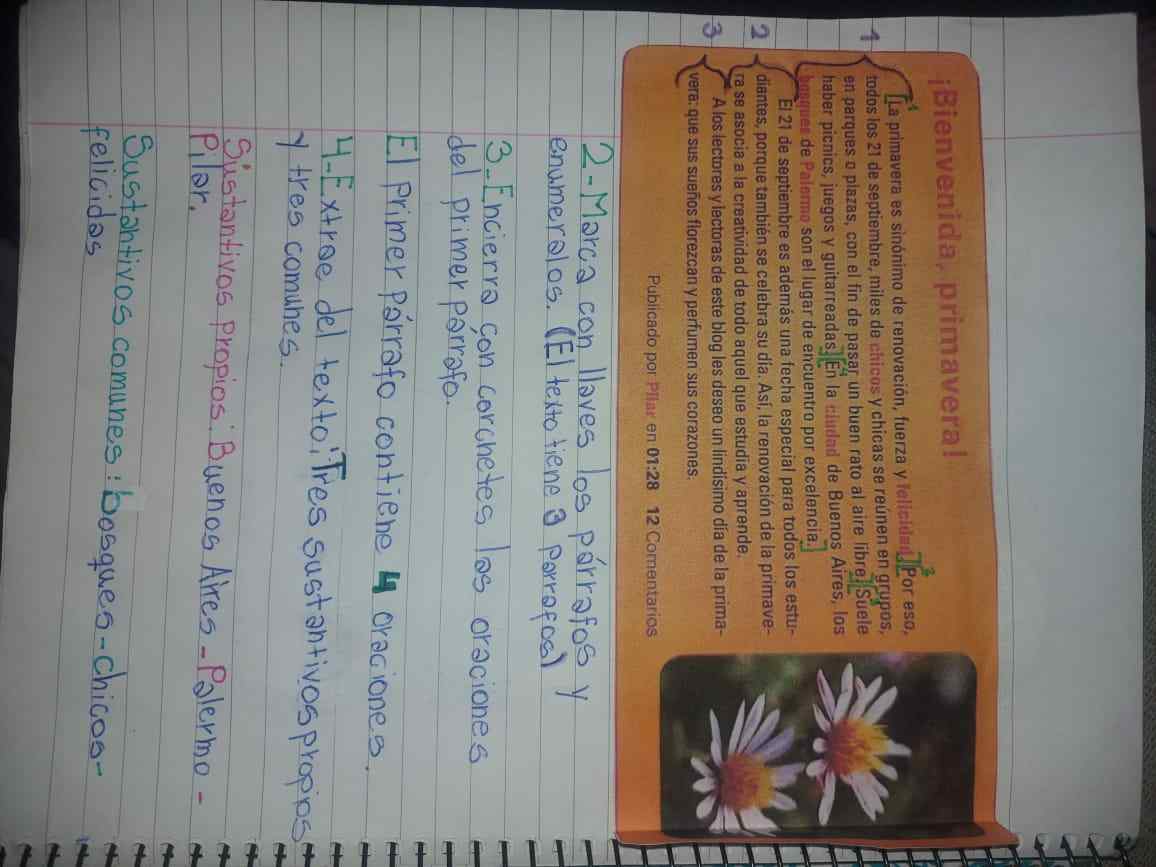 ¡Bienvenida, primavera!
1
2
3
[La primavera es sinónimo de renovación, fuerza y felicidad.][Por eso,
todos los 21 de septiembre, miles de chicos y chicas se reúnen en grupos,
en parques o plazas, con el fin de pasar un buen rato al aire libre.][Suele
haber picnics, juegos y guitarreadas.][En la ciudad de Buenos Aires, los
bosques de Palermo son el lugar de encuentro por excelencia.]
El 21 de septiembre es además una fecha especial para todos los estu-
diantes, porque también se celebra su día. Así, la renovación de la primave-
ra se asocia a la creatividad de todo aquel que estudia y aprende.
A los lectores y lectoras de este blog les deseo un lindísimo día de la prima-
vera: que sus sueños florezcan y perfumen sus corazones.
Publicado por Pilar en 01:28 12 Comentarios
2-Marca con llaves los párrafos y
enumeralos. (El texto tiene 3 parrafos)
3-Encierra con corchetes las oraciones
del primer párrafo.
El primer párrafo contiene 4 oraciones.
4-Extrae del texto: Tres sustantivos propios
y tres comunes.
Sustantivos propios: Buenos Aires-Palermo-
Pilar.
Sustantivos comunes: bosques-chicos-
felicidas